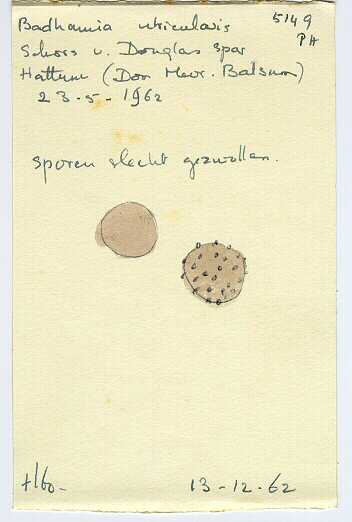 Badhamia utricularis 5149
Schors v. Douglas spar PA
Hattum (Door Mevr. Balsum)
23-5-1962
sporen slecht gezwollen.
13-12-62